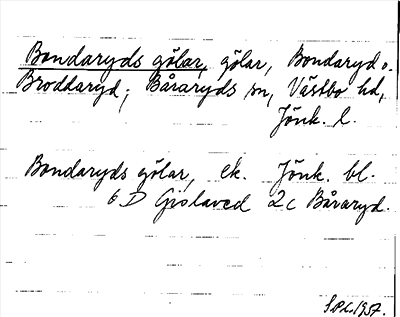 Bondaryds gölar, gölar, Bondaryd o.
Broddaryd; Båraryds sn, Västbo hd,
Jönk. l.
Bondaryds gölar, ek. Jönk. bl.
6 D Gislaved 2c Båraryd.
1957.